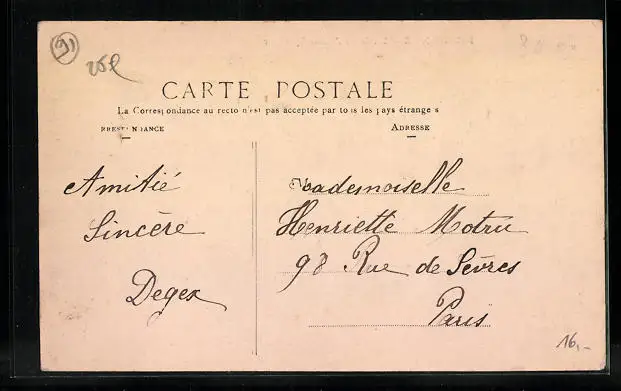 91
CARTE POSTALE
La Correspondance au recto n'est pas acceptée par tous les pays étrangers
ADRESSE
Amitié
Sincère
Mademoiselle
Henriette Motru
98 Rue de Sèvres
Paris
16,-